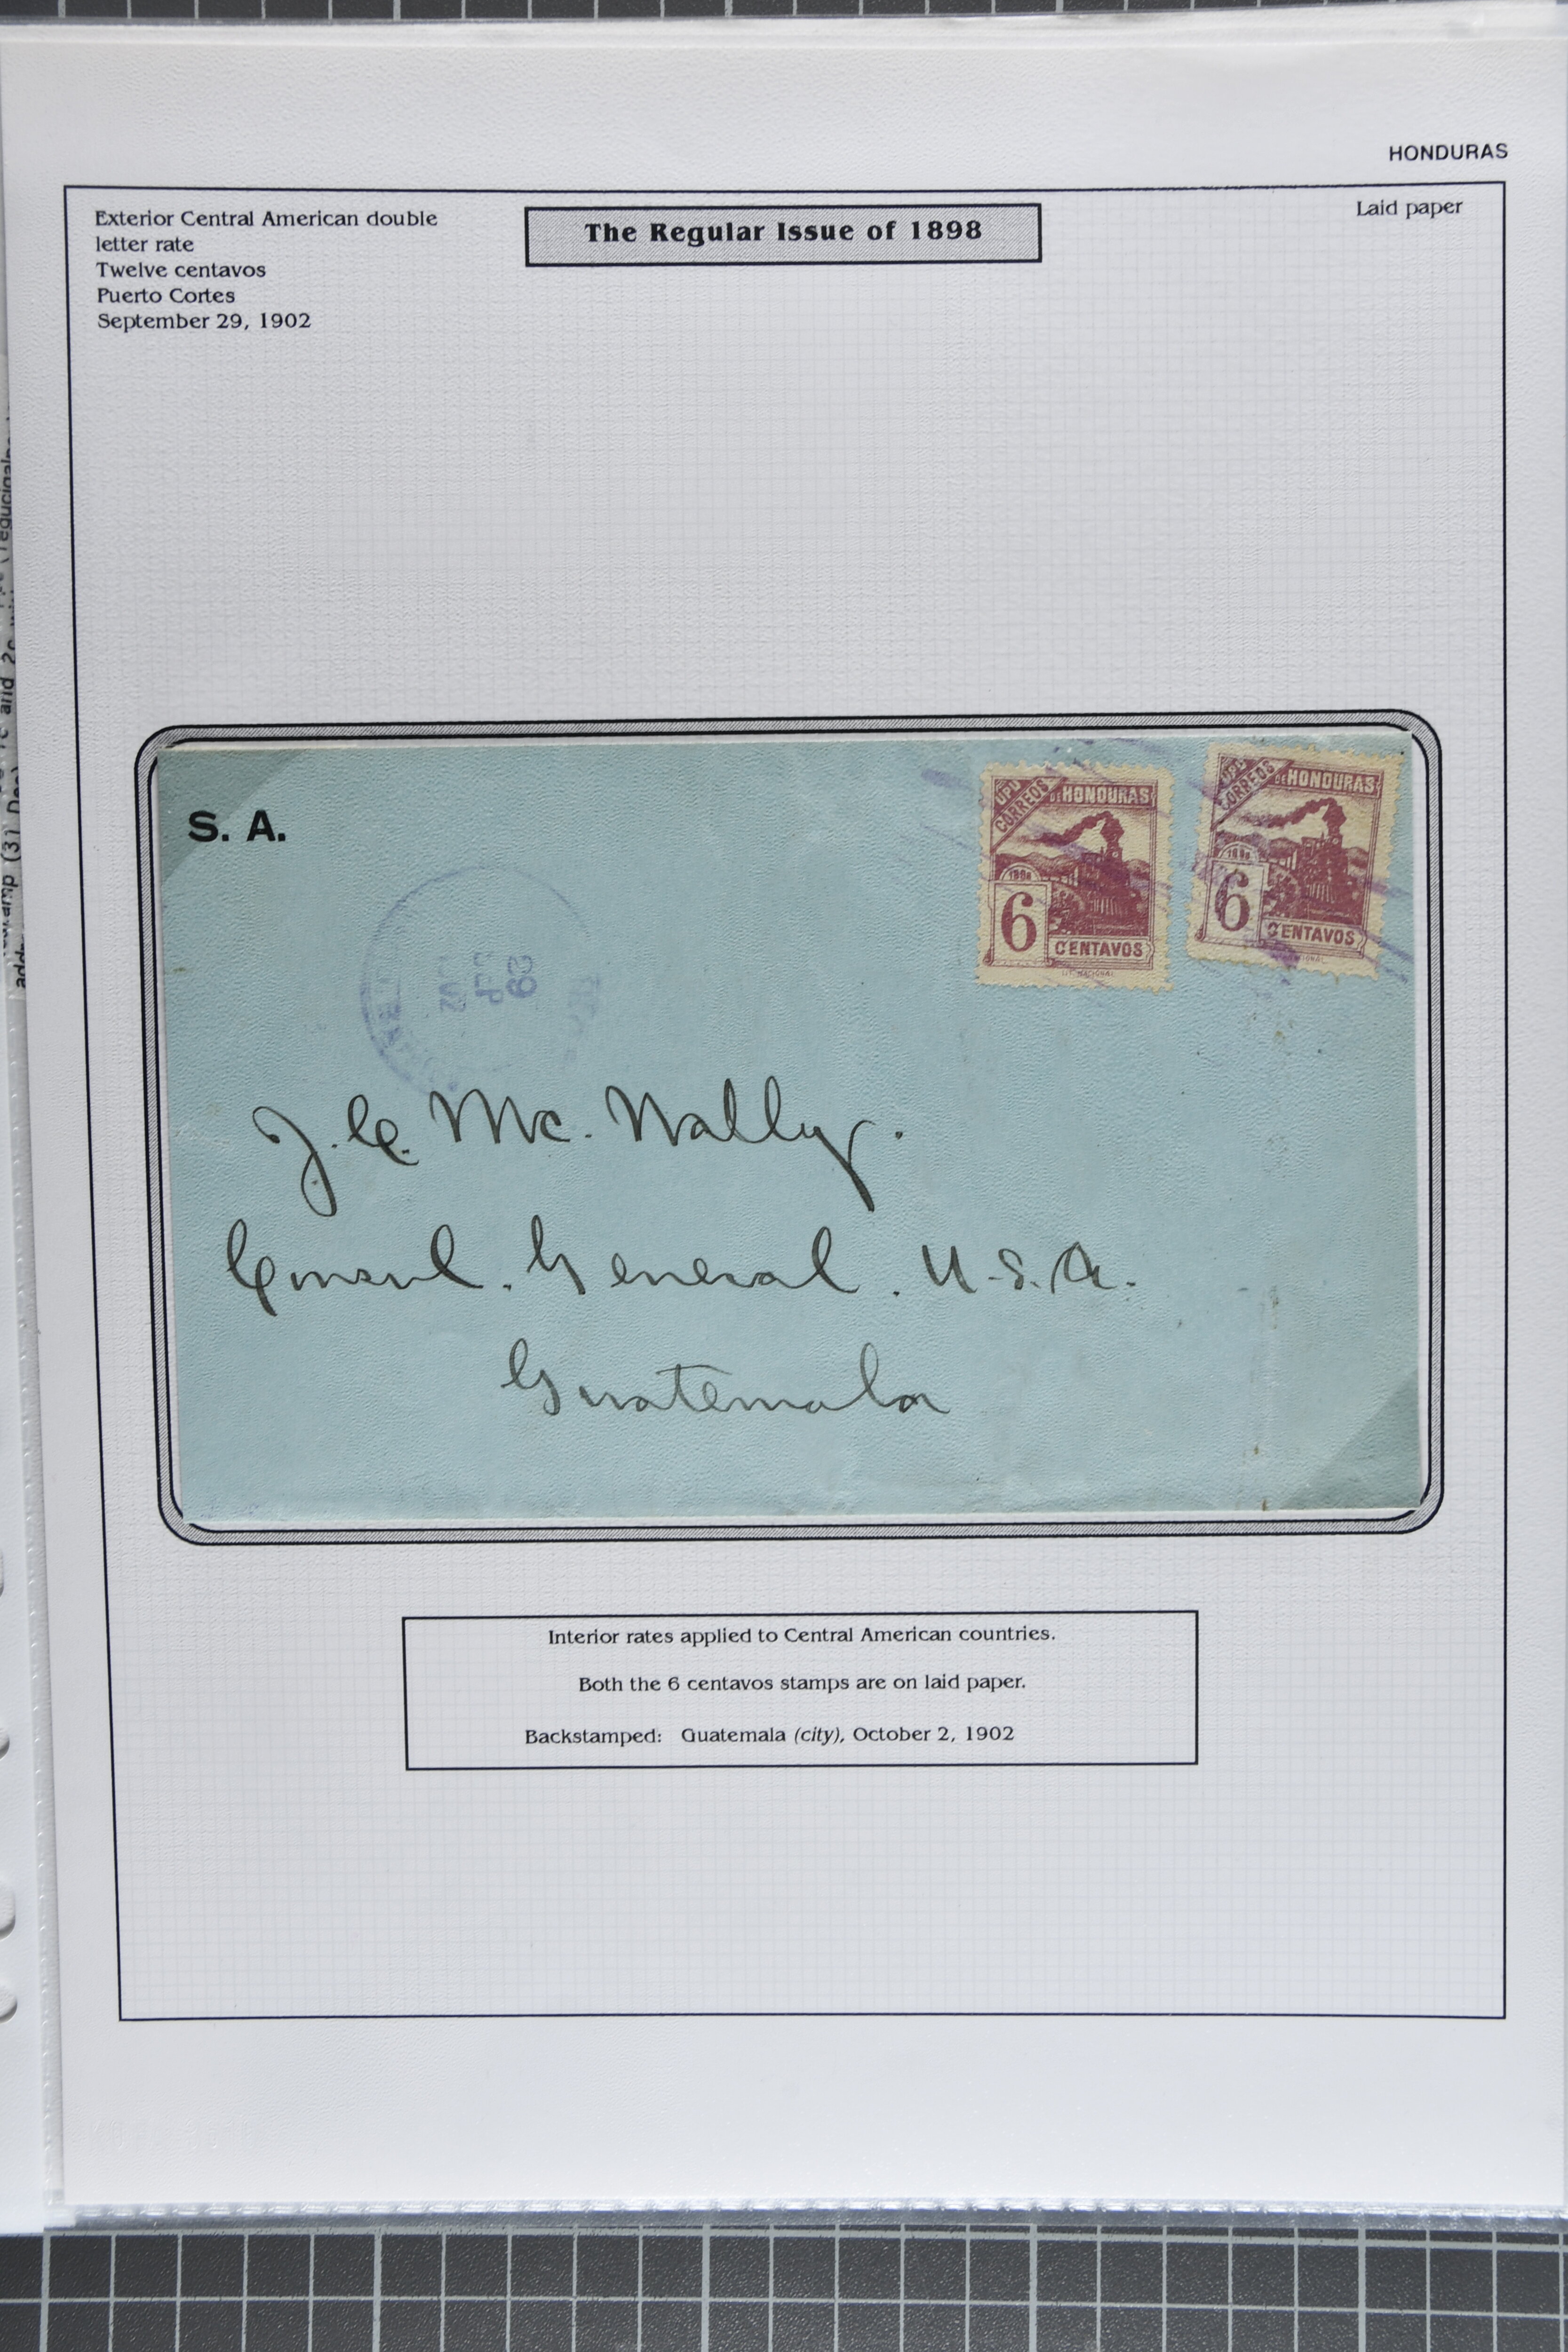 HONDURAS
Exterior Central American double
letter rate
Twelve centavos
Puerto Cortes
September 29, 1902
The Regular Issue of 1898
Laid paper
S. A.
UPU
CORREOS
DE HONDURAS
1898
6
CENTAVOS
LIT. NACIONAL
UPU
CORREOS
DE HONDURAS
1898
6
CENTAVOS
29
SEP
J. C. Mc. Nally.
Consul. General. U.S.A.
Guatemala
Interior rates applied to Central American countries.
Both the 6 centavos stamps are on laid paper.
Backstamped: Guatemala (city), October 2, 1902